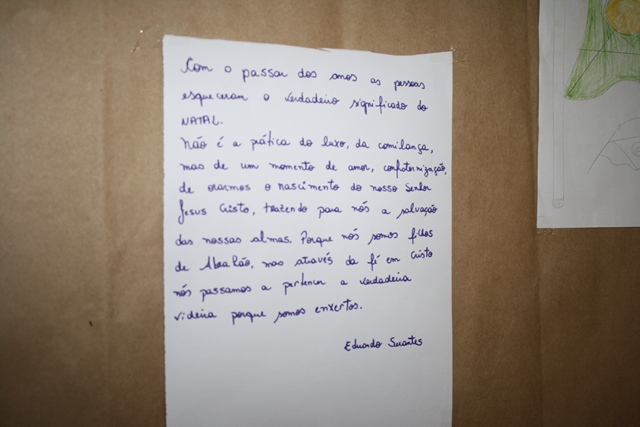 Com o passar dos anos as pessoas
esqueceram o verdadeiro significado do
NATAL.
Não é a prática do luxo, da comilança,
mas de um momento de amor, confraternização,
de orarmos o nascimento do nosso Senhor
Jesus Cristo, trazendo para nós a salvação
das nossas almas. Porque nós somos filhos
de Abraão, mas através da fé em Cristo
nós passamos a pertencer a verdadeira
videira porque somos enxertos.
Eduardo